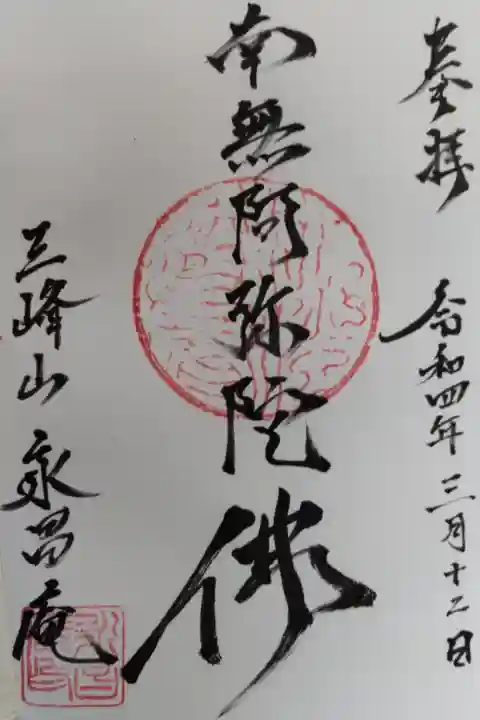 奉拝
令和四年三月十二日
南無阿弥陀佛
三峰山永昌庵